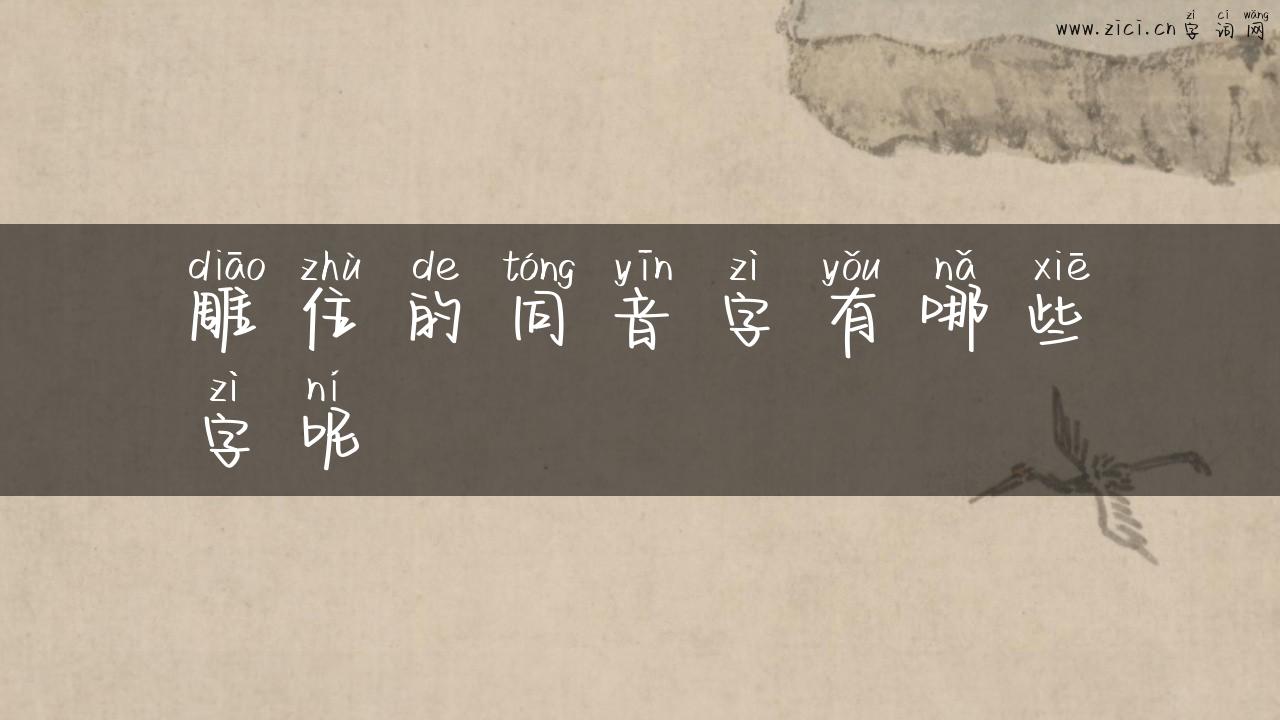 zì cí wǎng
www.zici.cn字词网
diāo zhù de tóng yīn zì yǒu nǎ xiē
雕住的同音字有哪些
zì ní
字呢